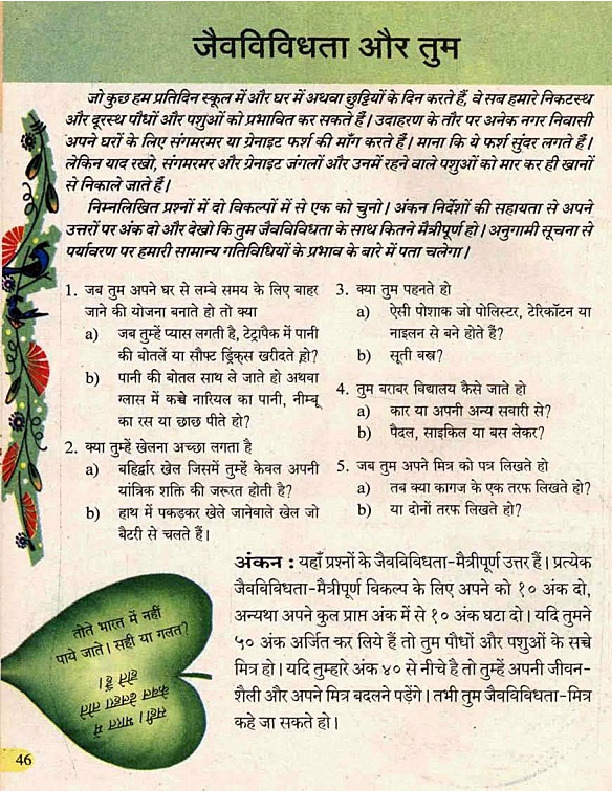 जैवविविधता और तुम
जो कुछ हम प्रतिदिन स्कूल में और घर में अथवा छुट्टियों के दिन करते हैं, वे सब हमारे निकटस्थ
और दूरस्थ पौधों और पशुओं को प्रभावित कर सकते हैं। उदाहरण के तौर पर अनेक नगर निवासी
अपने घरों के लिए संगमरमर या ग्रेनाइट फर्श की माँग करते हैं। माना कि ये फर्श सुंदर लगते हैं।
लेकिन याद रखो, संगमरमर और ग्रेनाइट जंगलों और उनमें रहने वाले पशुओं को मार कर ही खानों
से निकाले जाते हैं।
निम्नलिखित प्रश्नों में दो विकल्पों में से एक को चुनो। अंकन निर्देशों की सहायता से अपने
उत्तरों पर अंक दो और देखो कि तुम जैवविविधता के साथ कितने मैत्रीपूर्ण हो। अनुगामी सूचना से
पर्यावरण पर हमारी सामान्य गतिविधियों के प्रभाव के बारे में पता चलेगा।
1. जब तुम अपने घर से लम्बे समय के लिए बाहर
जाने की योजना बनाते हो तो क्या
a) जब तुम्हें प्यास लगती है, टेट्रापैक में पानी
की बोतलें या सौफ्ट ड्रिंक्स खरीदते हो?
b) पानी की बोतल साथ ले जाते हो अथवा
ग्लास में कच्चे नारियल का पानी, नीम्बू
का रस या छाछ पीते हो?
2. क्या तुम्हें खेलना अच्छा लगता है
a) बहिर्द्वार खेल जिसमें तुम्हें केवल अपनी
यांत्रिक शक्ति की जरूरत होती है?
b) हाथ में पकड़कर खेले जानेवाले खेल जो
बैटरी से चलते हैं॥
3. क्या तुम पहनते हो
a) ऐसी पोशाक जो पोलिस्टर, टेरिकॉटन या
नाइलन से बने होते हैं?
b) सूती वस्त्र?
4. तुम बराबर विद्यालय कैसे जाते हो
a) कार या अपनी अन्य सवारी से?
b) पैदल, साइकिल या बस लेकर?
5. जब तुम अपने मित्र को पत्र लिखते हो
a) तब क्या कागज के एक तरफ लिखते हो?
b) या दोनों तरफ लिखते हो?
अंकन : यहाँ प्रश्नों के जैवविविधता-मैत्रीपूर्ण उत्तर हैं। प्रत्येक
जैवविविधता-मैत्रीपूर्ण विकल्प के लिए अपने को १० अंक दो,
अन्यथा अपने कुल प्राप्त अंक में से १० अंक घटा दो। यदि तुमने
५० अंक अर्जित कर लिये हैं तो तुम पौधों और पशुओं के सच्चे
मित्र हो। यदि तुम्हारे अंक ४० से नीचे है तो तुम्हें अपनी जीवन-
शैली और अपने मित्र बदलने पड़ेंगे। तभी तुम जैवविविधता-मित्र
कहे जा सकते हो।
तोते भारत में नहीं
पाये जाते। सही या गलत?
सही। भारत में
केवल टेलहा तोते
होते हैं।
46